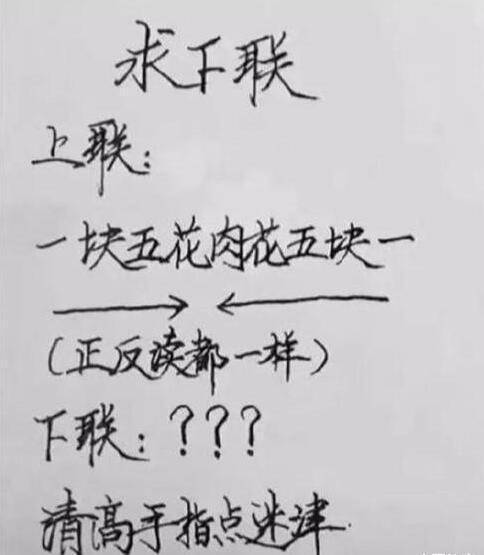 求下联
上联：
一块五花肉花五块一
（正反读都一样）
下联：？？？
请高手指点迷津